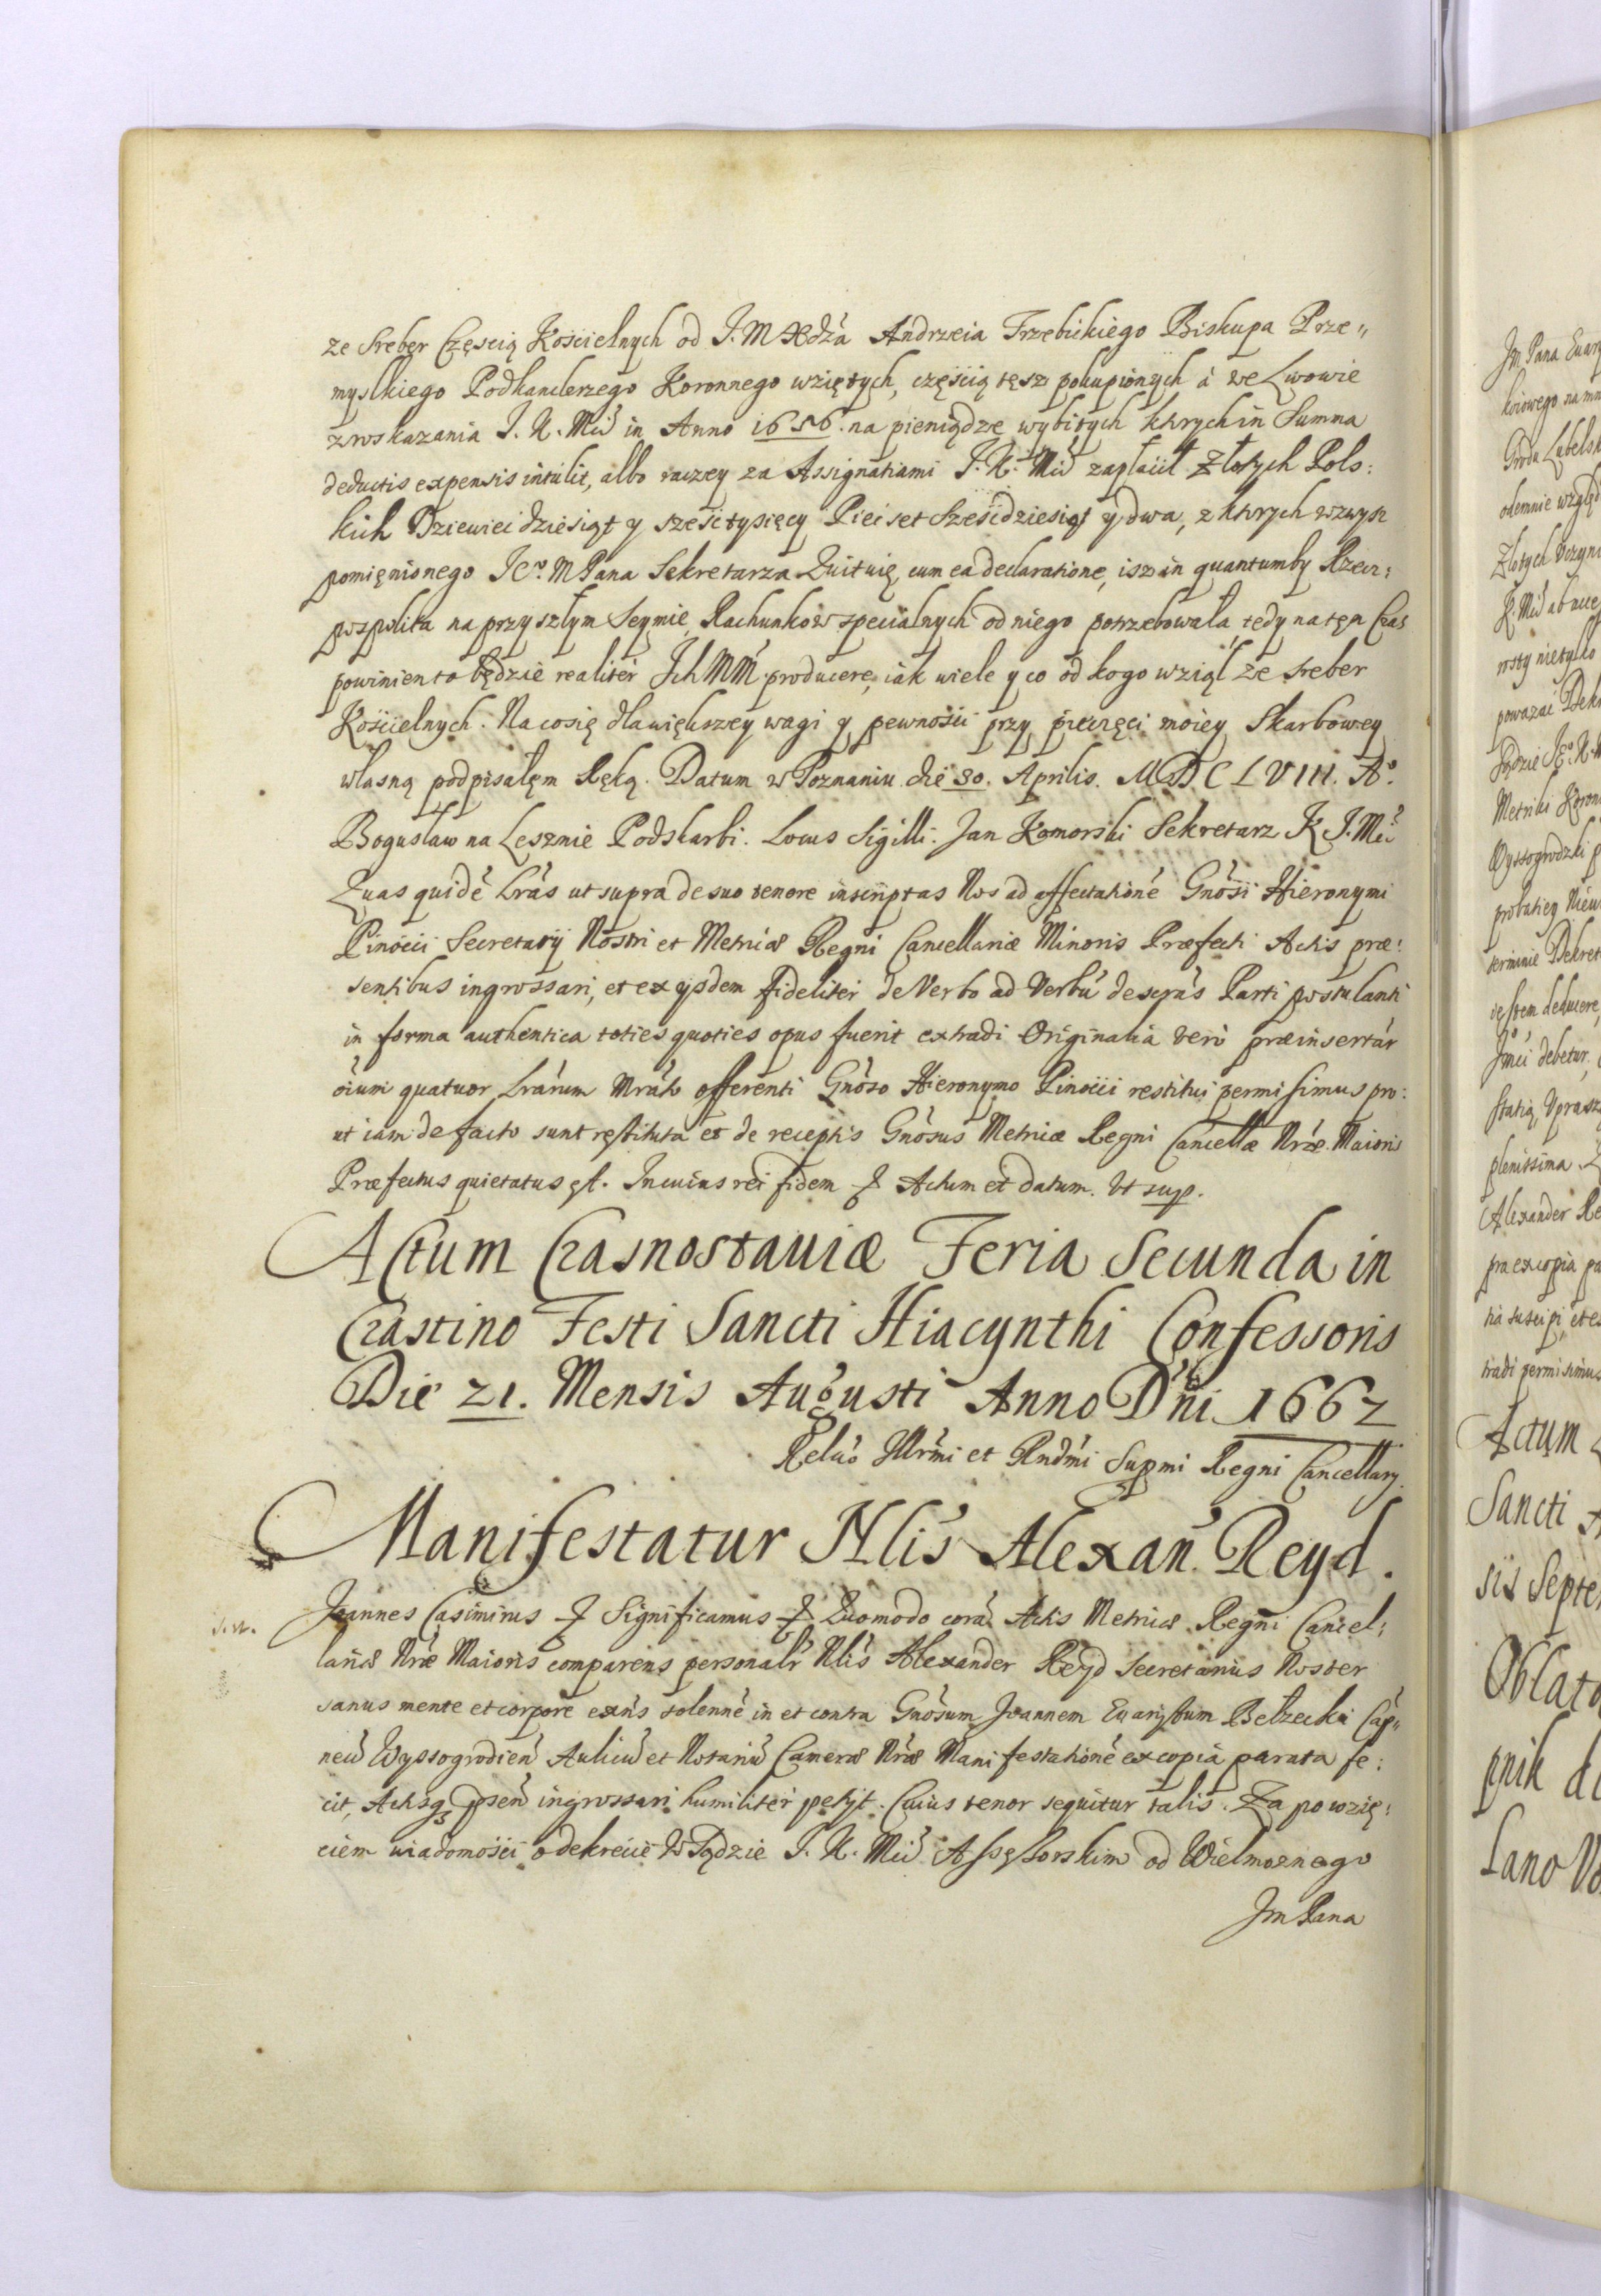 ze Sreber Częscią Kościelnych od J. M Xdźa Andrzeia Trzebickiego Biskupa Prze„
myslkiego Podkanclerzego Koronnego wziętych, częścią tesz pokupionych à we Lwowie
z wskazania J. K. Mći in Anno 1656. na pieniądze wybitych ktorych in Summa
deductis expensis intulit, albo raczey za Assignatiami J. K. Mći zapłacił Złotych Pols:
kich Dziewieć dziesiąt y sześć tysięcy Piecset Sześćdziesiąt y dwa, z ktorych wzwysz
pomięnionego Jeo. M Pana Sekretarza Quituię, cum ea declaratione, isz in quantumby Rzecz:
pospolita na przyszłym Seymie, Rachunkow specialnych od niego potrzebowała, tedy na tęn Czas
powinien to będzie realiter Ich MM producere, iak wiele y co od kogo wziął ze sreber
Kościelnych. Na co się dla większey wagi y pewności przy pieczęci moiey Skarbowey
własną podpisałęm Ręką. Datum w Poznaniu die 30. Aprilis. MDCLVIII. Ao.
Bogusław na Lesznie Podskarbi. Locus Sigilli. Jan Komorski Sekretarz K J. Mći
Quas quidē Lrās ut supra de suo tenore inscriptas Nos ad affectationē Gnōsi Hieronymi
Pinocii Secretarij Nostri et Metricæ Regni Cancellariæ Minoris Præfecti Actis præ:
sentibus ingrossari, et ex ijsdem fideliter de Verbo ad Verbū descrās Parti postulanti
in forma authentica toties quoties opus fuerit extradi Originalia vero præinsertār
oīum quatuor Lrārum Mrāto offerenti Gnōso Hieronymo Pinocii restitui permisimus pro:
ut iam de facto sunt restituta et de receptis Gnōsus Metricæ Regni Cancellæ Nræ. Maioris
Præfectus quietatus est. In cuius rei fidem & Actum et datum. Ut sup.
Actum Crasnostaviæ Feria Secunda in
Crastino Festi Sancti Hiacynthi Confessoris
Die 21. Mensis Augusti Anno Dñi 1662
Relāo Illrmi et Rndmi Supmi Regni Cancellarij.
Manifestatur Nlis Alexan. Reyd.
Joannes Casimirus & Significamus & Quomodo corā Actis Metricæ Regni Cancel:
lariæ Nræ Maioris comparens personalr Nlis Alexander Reyd Secretarius Noster
sanus mente et corpore exñs solennē in et contra Gnōsum Joannem Evarystum Bełzecki Cap„
neū Wyssogrodien Aulicū et Notariū Cameræ Nræ Manifestationē ex copia parata fe:
cit, Actisq, psen ingrossari humiliter petijt. Cuius tenor sequitur talis. Za powzię:
ciem wiadomości o dekrecie w Sądzie J. K. Mći Assessorskim od Wielmoznego
Jm Pana